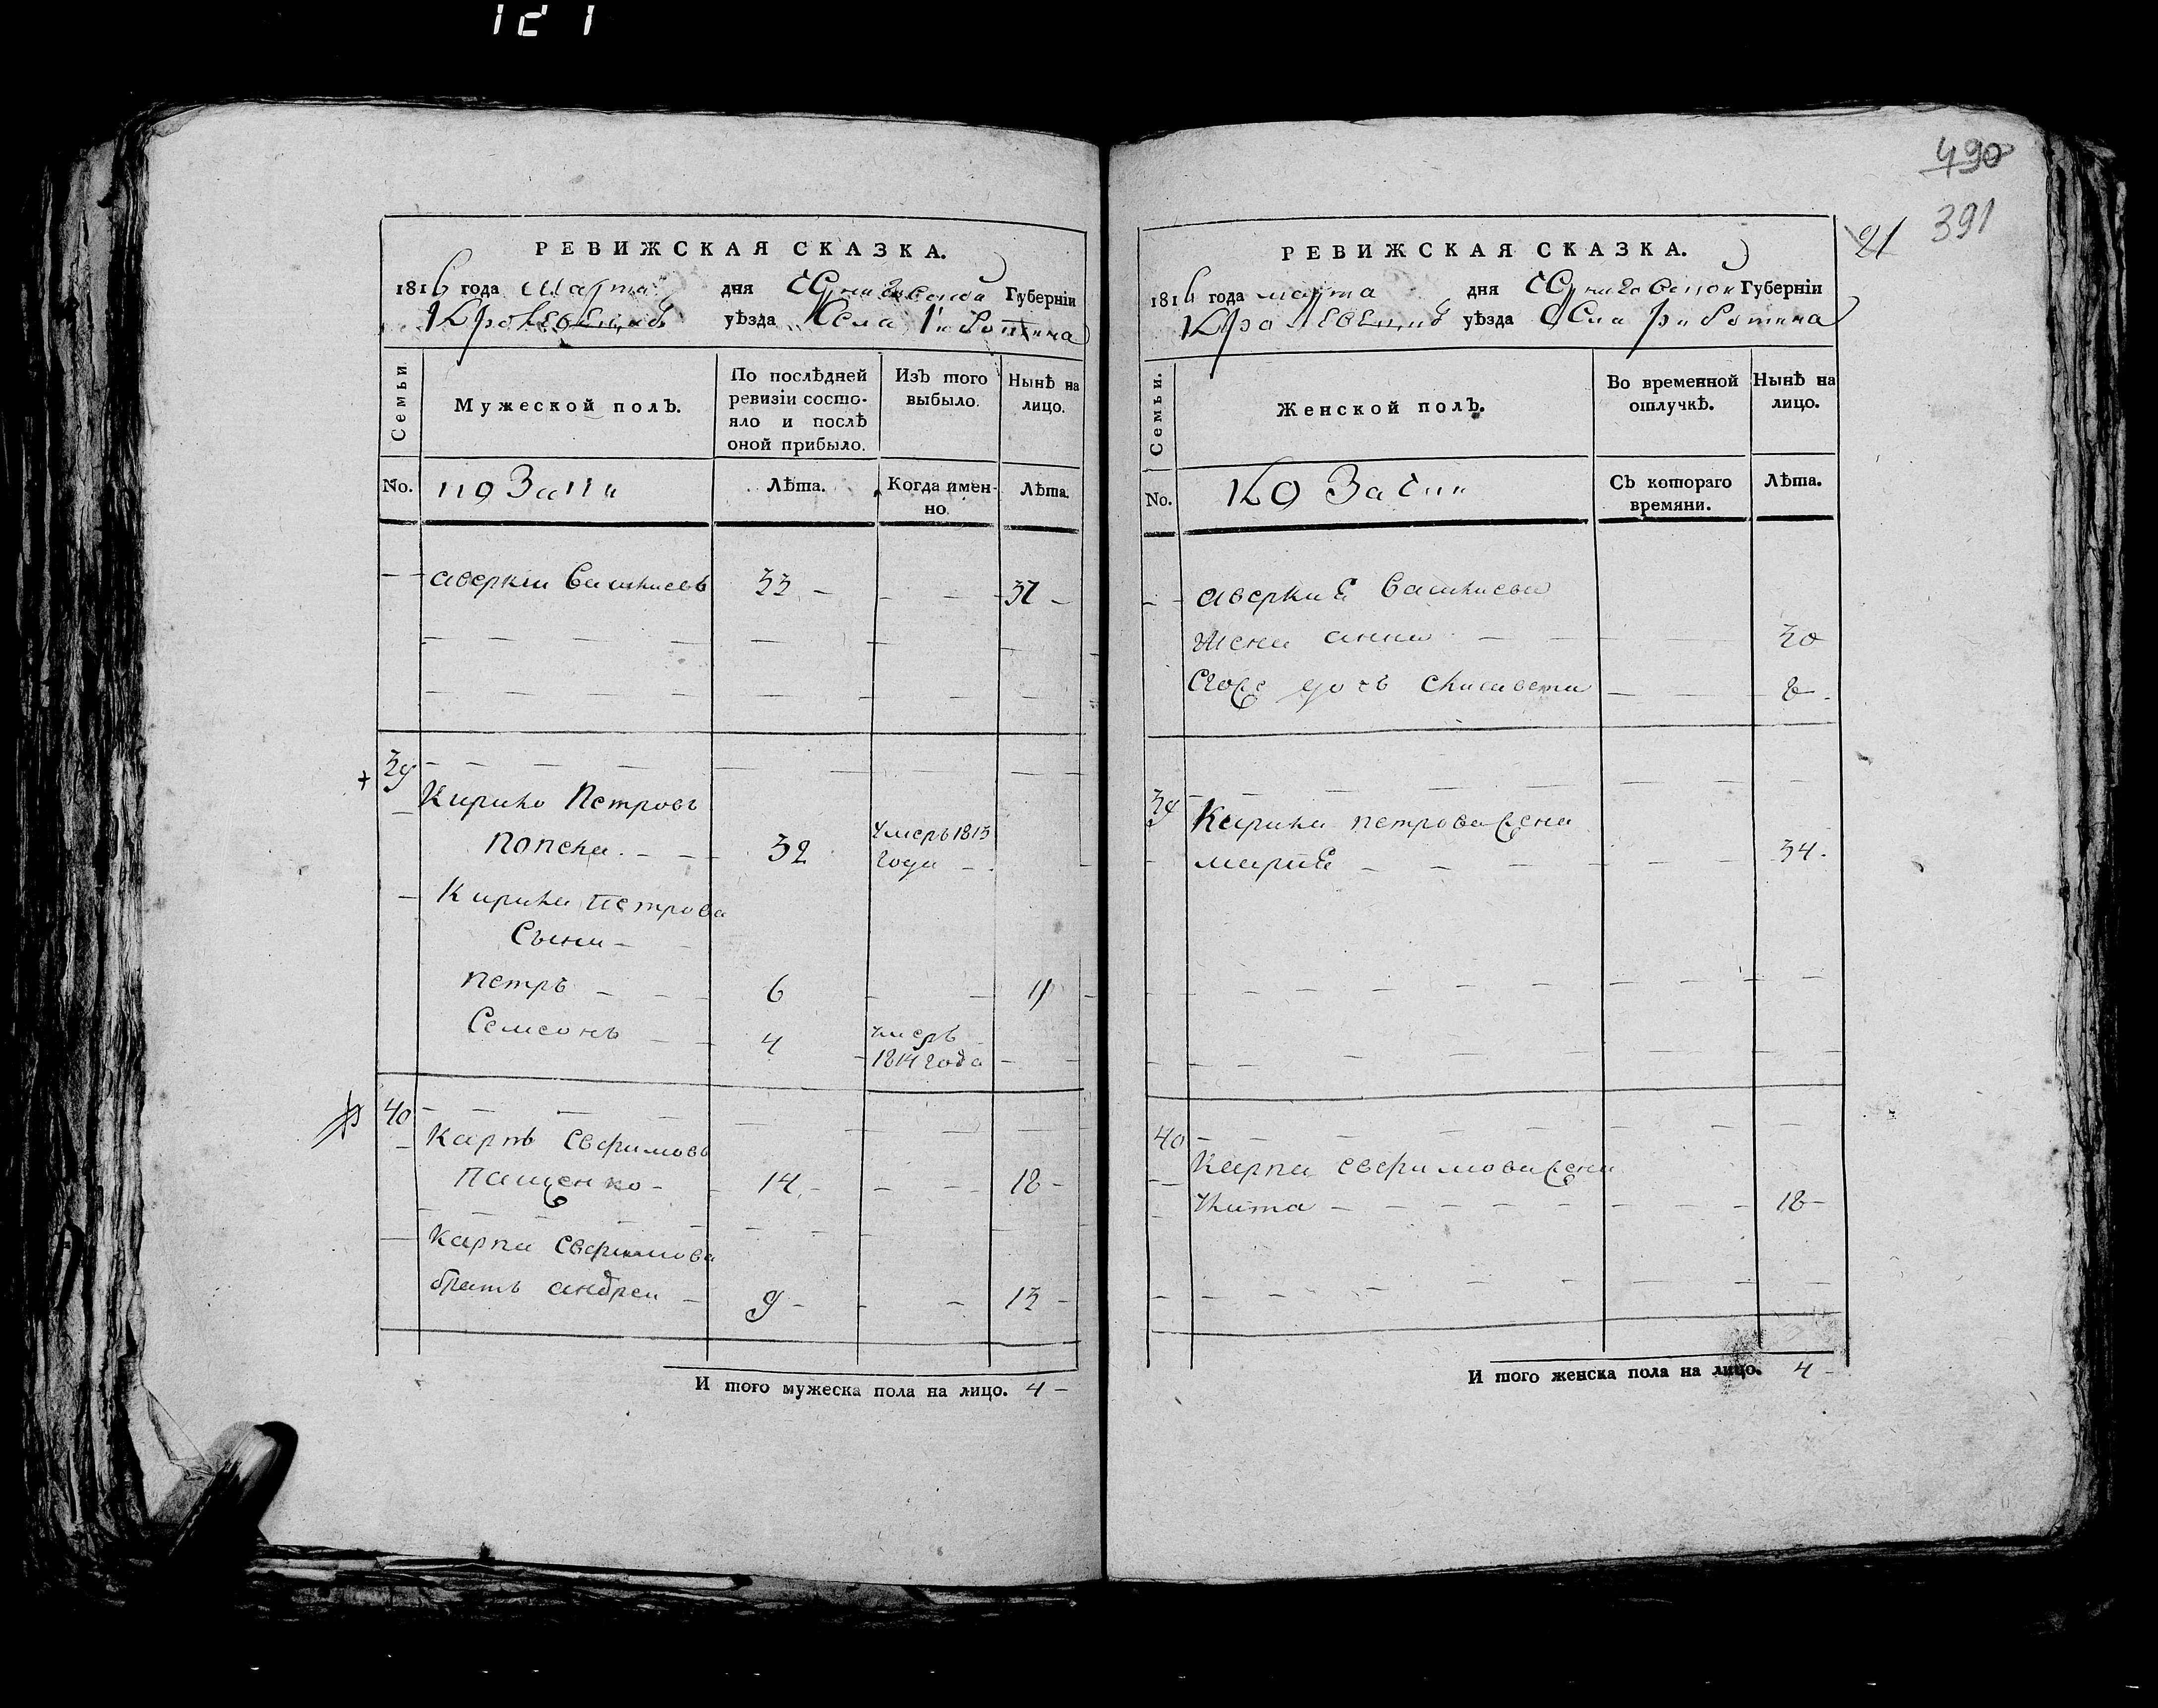 121
490
391
21
РЕВИЖСКАЯ СКАЗКА.
1816 года марта дня Черниговской Губерніи
Кролевецкаго уѣзда Села
Семьи.
Мужеской полъ.
По послѣдней ревизіи состо-
яло и послѣ
оной прибыло.
Изъ того
выбыло.
Нынѣ на
лицо.
No.
Козаки
Лѣта.
Когда имен-
но.
Лѣта.
аверкии 33 - - - 37 -
39
Кирило Петровъ
Попека - - 32 умеръ 1813
года -
Кирила Петрова
Сыни -
Петръ - - 6 - - 11
Семенъ - - 4 умеръ
1814 года - -
40
Карпъ Ефимовъ
Пащенко - 14 - - - 18 -
Карпа Ефимова
братъ андреи - 9 - - - 13 -
И того мужеска пола на лицо. 4 -
РЕВИЖСКАЯ СКАЗКА.
1816 года марта дня Черниговской Губерніи
Кролевецкаго уѣзда Села
Семьи.
Женской полъ.
Во временной
отлучкѣ.
Нынѣ на
лицо.
No.
Козачки
Съ котораго
времяни.
Лѣта.
аверкия
жена анна - - - - 30
дочь елисавета - - 8 -
39
Кирила петрова жена
мария - - - - - - 34 -
40
Карпа ефимова жена
- - - - - - - 18 -
И того женска пола на лицо. 4 -